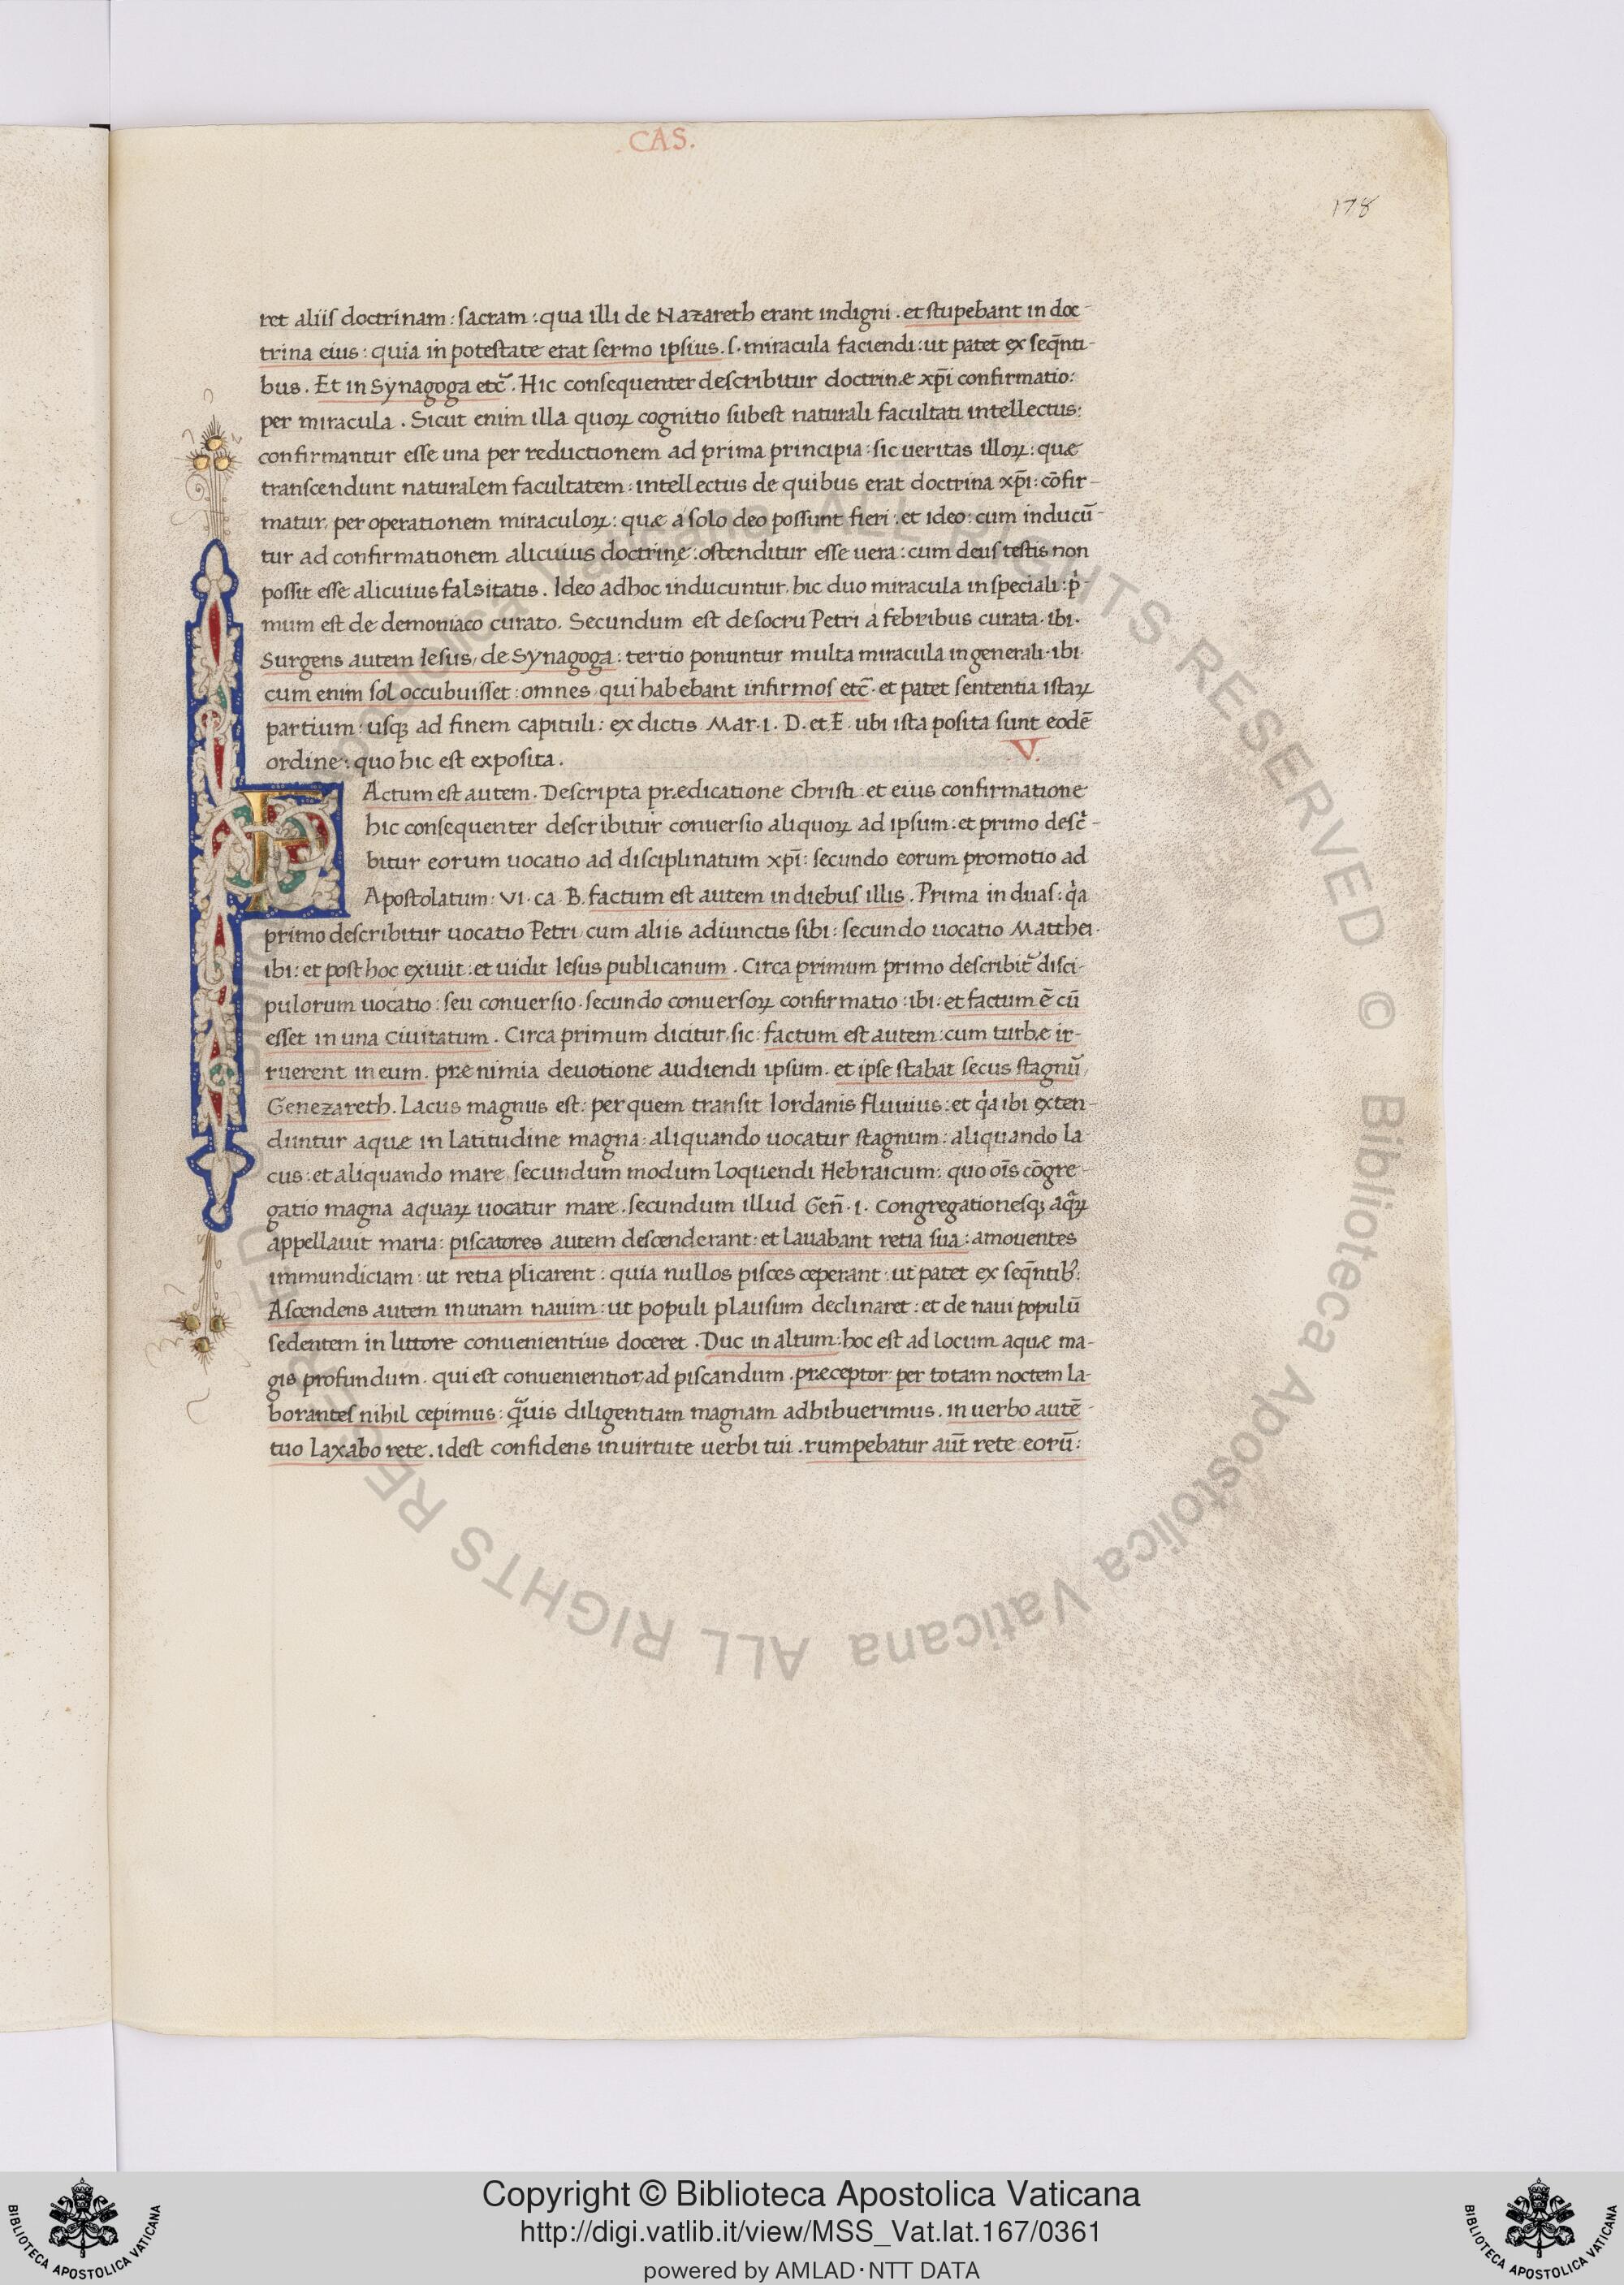 CAS.
178
ret aliis doctrinam : sacram : qua illi de Nazareth erant indigni . et stupebant in doc-
trina eius : quia in potestate erat sermo ipsius . s. miracula faciendi : ut patet ex seqn̄ti-
bus . Et in Synagoga etc̄ . Hic consequenter describitur doctrinæ xp̄i confirmatio :
per miracula . Sicut enim illa quoꝝ cognitio subest naturali facultati intellectus :
confirmantur esse una per reductionem ad prima principia : sic ueritas illoꝝ : quæ
transcendunt naturalem facultatem : intellectus de quibus erat doctrina xp̄i : cōfir-
matur per operationem miraculoꝝ : quæ a solo deo possunt fieri : et ideo : cum inducū-
tur ad confirmationem alicuius doctrinę : ostenditur esse uera : cum deus testis non
possit esse alicuius falsitatis . Ideo adhoc inducuntur hic duo miracula in speciali : pⁱ-
mum est de demoniaco curato . Secundum est de socru Petri a febribus curata . ibi .
Surgens autem Iesus, de Synagoga : tertio ponuntur multa miracula in generali . ibi .
cum enim sol occubuisset : omnes qui habebant infirmos etc̄ . et patet sententia istaꝝ
partium : usqꝫ ad finem capituli : ex dictis Mar . i . D . et E . ubi ista posita sunt eodē
ordine : quo hic est exposita .
V.
FActum est autem . Descripta prædicatione Christi . et eius confirmatione
hic consequenter describitur conuersio aliquoꝝ ad ipsum : et primo descⁱ-
bitur eorum uocatio ad disciplinatum xp̄i : secundo eorum promotio ad
Apostolatum : VI . ca . B . factum est autem in diebus illis . Prima in duas : qⁱa
primo describitur uocatio Petri cum aliis adiunctis sibi : secundo uocatio Matthei .
ibi : et post hoc exiuit : et uidit Iesus publicanum . Circa primum primo describit᷑ disci-
pulorum uocatio : seu conuersio . secundo conuersoꝝ confirmatio : ibi : et factum ē cū
esset in una Ciuitatum . Circa primum dicitur, sic : factum est autem : cum turbæ ir-
ruerent in eum . præ nimia deuotione audiendi ipsum . et ipse stabat secus stagnū
Genezareth . Lacus magnus est : per quem transit Iordanis fluuius : et qⁱa ibi exten-
duntur aquæ in latitudine magna : aliquando uocatur stagnum : aliquando la-
cus : et aliquando mare, secundum modum loquendi Hebraicum : quo oīs cōgre-
gatio magna aquaꝝ uocatur mare . secundum illud Gen̄ . i . Congregationesqꝫ aqᵃꝝ
appellauit maria : piscatores autem descenderant : et lauabant retia sua : amouentes
immundiciam : ut retia plicarent : quia nullos pisces ceperant : ut patet ex seqn̄tibꝰ :
Ascendens autem in unam nauim : ut populi plausum declinaret : et de naui populū
sedentem in littore conuenientius doceret . Duc in altum : hoc est ad locum aquæ ma-
gis profundum . qui est conuenientior, ad piscandum . præceptor : per totam noctem la-
borantes nihil cepimus : qᵃuis diligentiam magnam adhibuerimus . in uerbo autē
tuo laxabo rete . idest confidens in uirtute uerbi tui . rumpebatur aūt rete eorū :
© Biblioteca Apostolica Vaticana ALL RIGHTS RESERVED
© Biblioteca Apostolica Vaticana ALL RIGHTS RESERVED
Copyright © Biblioteca Apostolica Vaticana
http://digi.vatlib.it/view/MSS_Vat.lat.167/0361
powered by AMLAD·NTT DATA
BIBLIOTECA APOSTOLICA VATICANA
BIBLIOTECA APOSTOLICA VATICANA